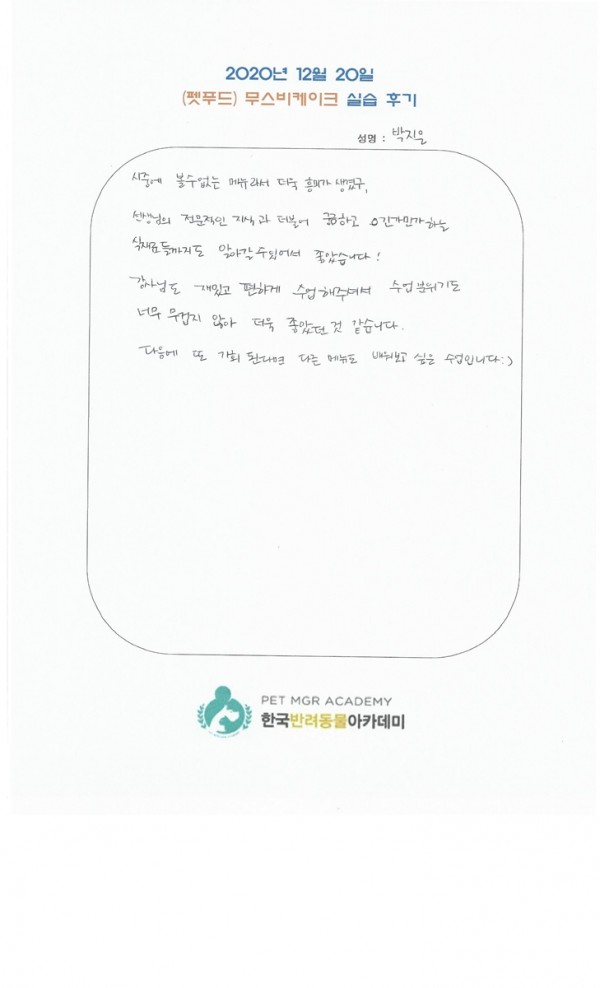 2020년 12월 20일
(펫푸드) 무스비케이크 실습 후기
성명 : 박지을
시중에 볼수없는 메뉴라서 더욱 흥미가 생겼구,
선생님의 전문적인 지식과 더불어 궁금하고 긴가민가하는
식재료들까지도 알아갈 수 있어서 좋았습니다!
강사님도 재밌고 편하게 수업해주셔서 수업 분위기도
너무 무겁지 않아 더욱 좋았던 것 같습니다.
다음에 또 기회 된다면 다른 메뉴도 배워보고 싶은 수업입니다:)
PET MGR ACADEMY
한국반려동물아카데미